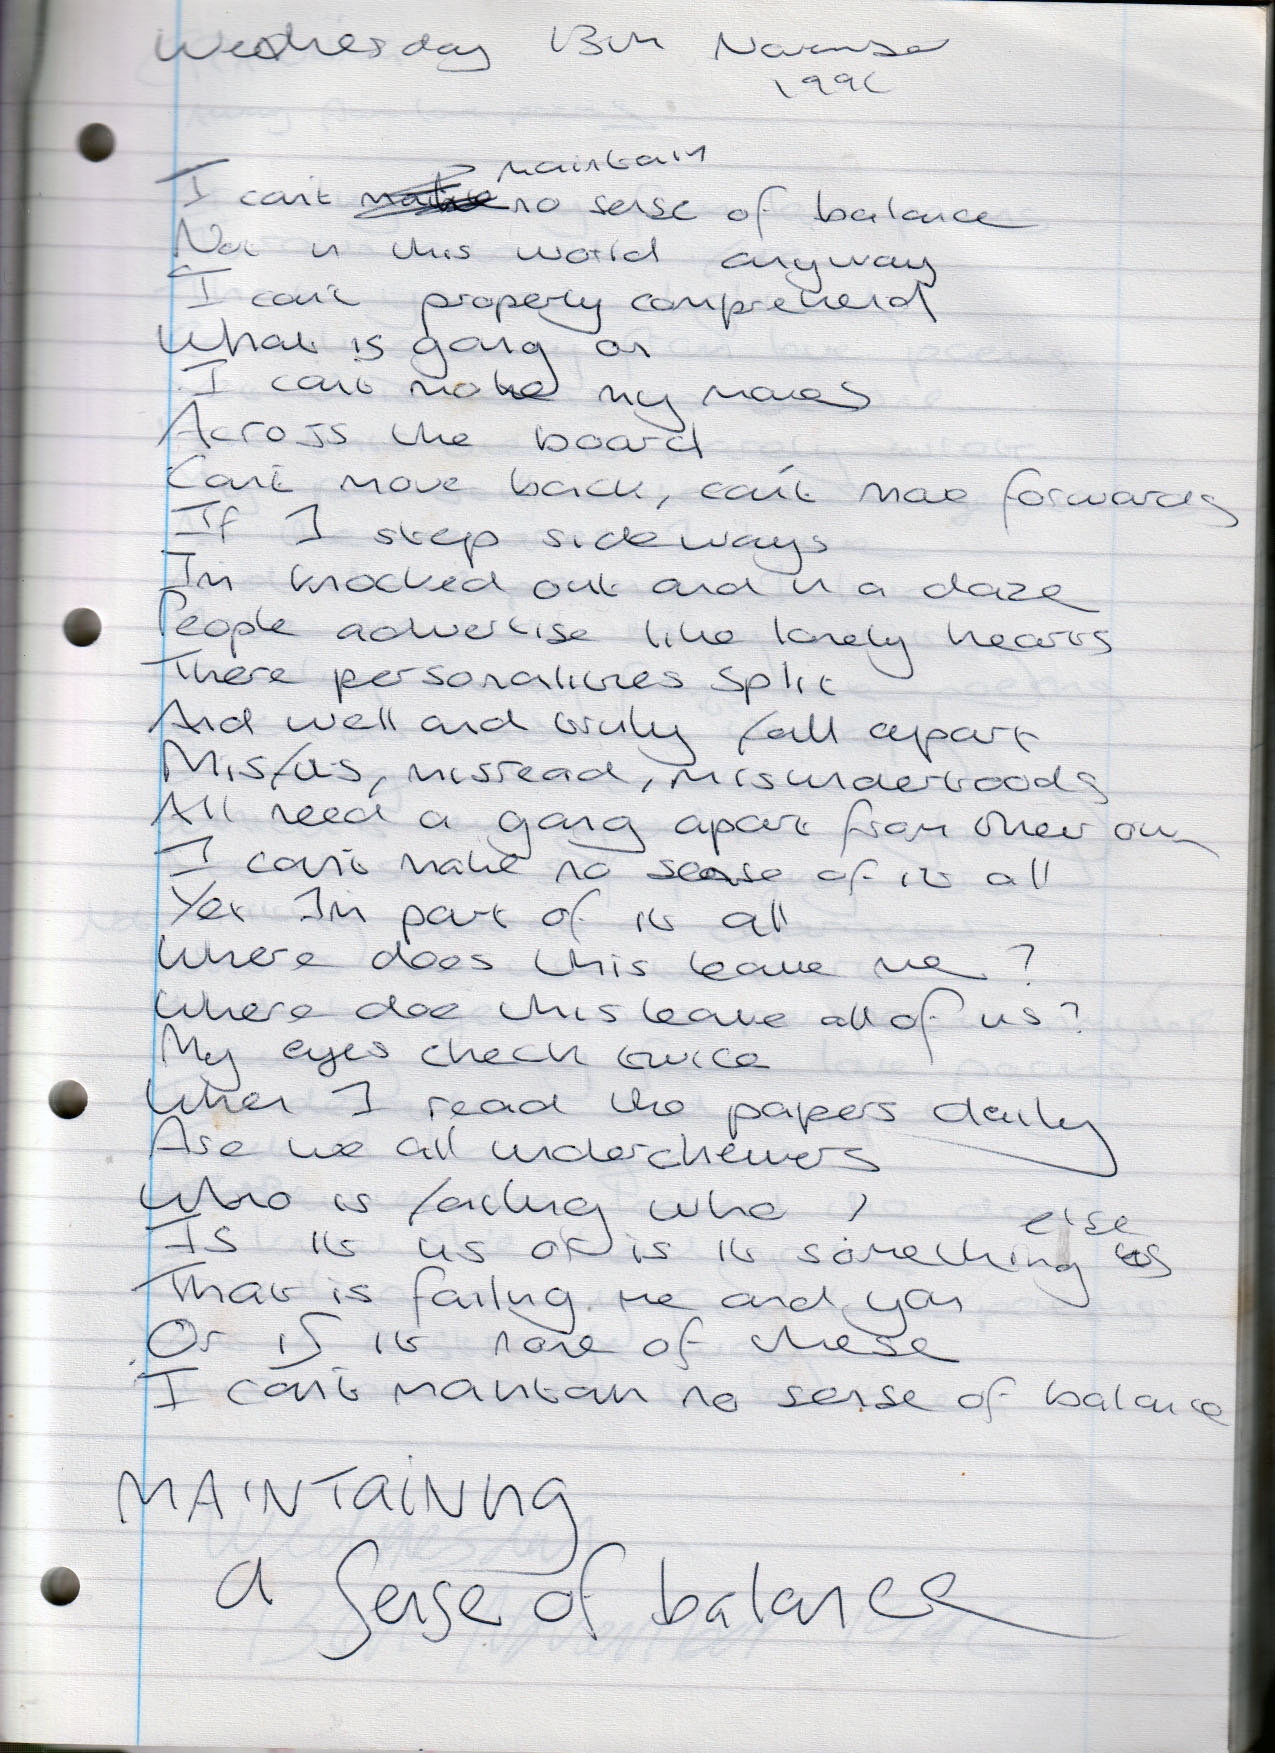 Wednesday 13th November
1996
I can't maintain no sense of balance
Not in this world anyway
I can't properly comprehend
What is going on
I can't make my moves
Across the board
Can't move back, can't move forwards
If I step sideways
I'm knocked out and in a daze
People advertise like lonely hearts
There personalities split
And well and truly fall apart
Misfits, misread, misunderstoods
All need a gang apart from their own
I can't make no sense of it all
Yet I'm part of it all
Where does this leave me?
Where does this leave all of us?
My eyes check twice
When I read the papers daily
Are we all underchievers
Who is failing who?
Is it us or is it something else
That is failing me and you
Or is it none of these
I can't maintain no sense of balance
MAINTAINING
a Sense of balance